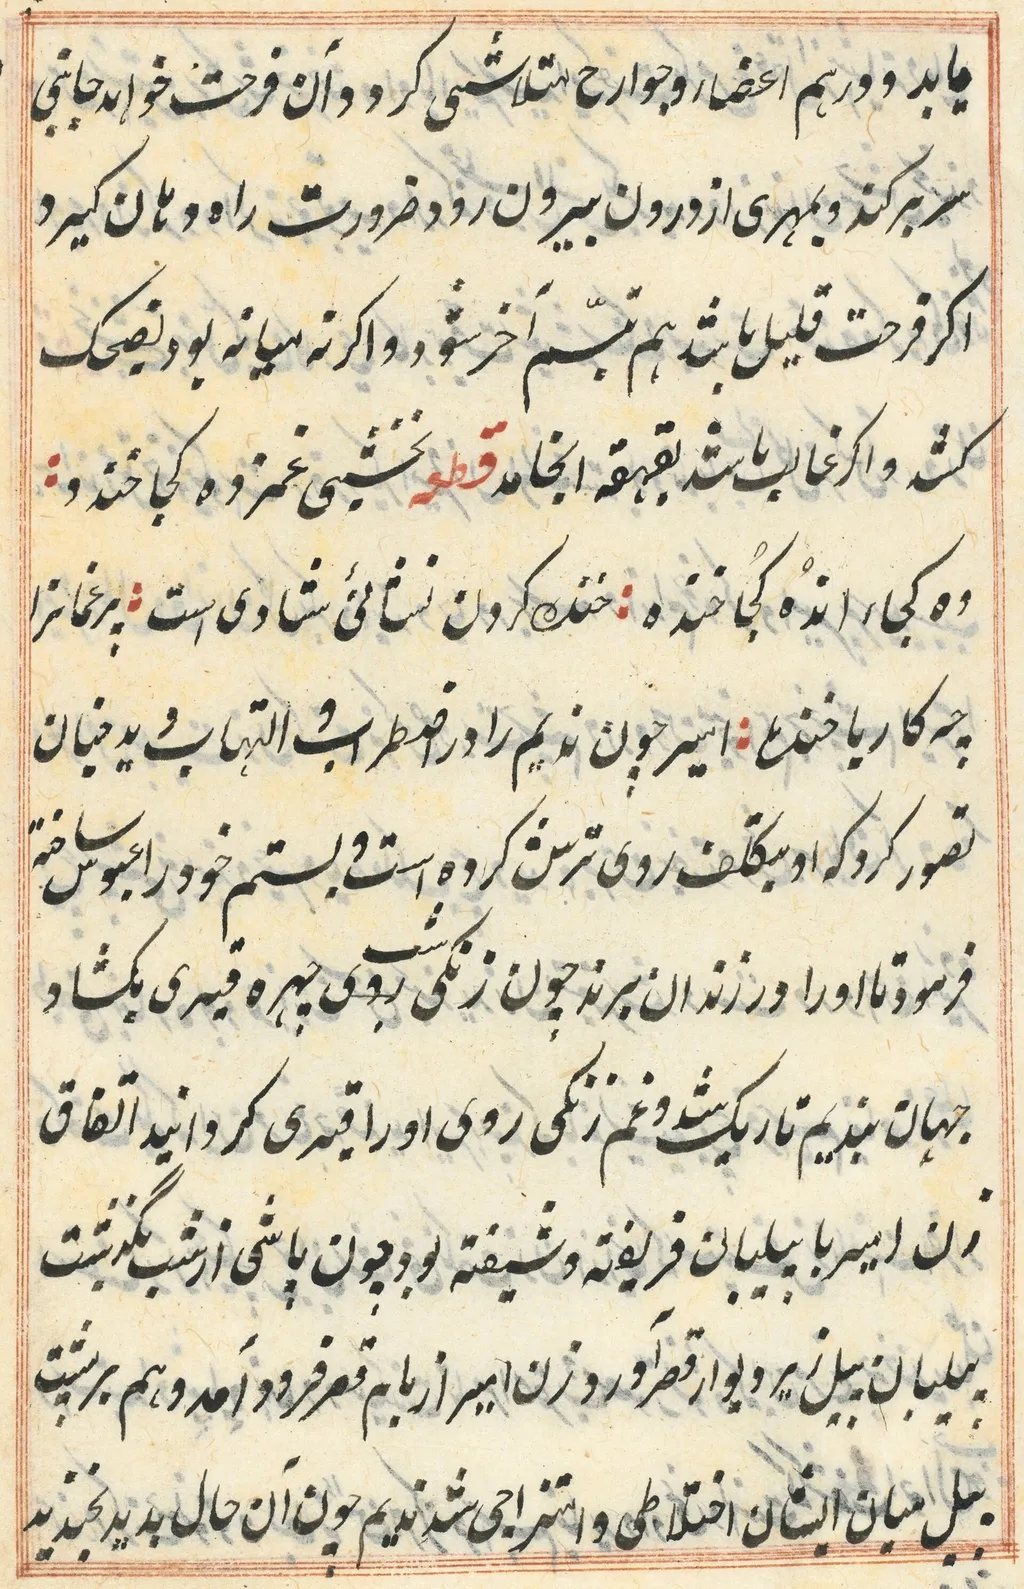 یابد و در هم اعضا و جوارح متلاشی کردد و آن فرحت خواهد جانبی
سر بر کند و بمهری از درون بیرون رود ضرورت راه دهان کیرد
اکر فرحت قلیل باشد هم تبسّم آخر شود و اکر نه میانه بود بضحک
کشد و اکر غالب باشد بقهقه انجامد قطعه نخشبی غمزده کجا خندد
وه کجاء اندُه کُجا خنده : خنده کردن نشانئ شادی است : پر غمانرا
چه کار با خنده : امیر چون ندیم را در اضطراب و التهاب دید چنان
تصور کرد که او بتکلف روی ترش کرده است و بستم خود را عبوس ساخته
فرمود تا او را در زندان برند چون زنکی شب روی چهره قیری بکشاد
جهان بندیم تاریک شد و غم زنکی روی او را قیری کردانید اتفاق
زن امیر با پیلبان فریفته و شیفته بود چون پاشی از شب بگذشت
پیلبان پیل زیر دیوار قصر آورد و زن امیر از بام قصر فرود آمد و هم بر پشت
پیل میان ایشان اختلاطی و امتزاجی شد ندیم چون آن حال بدید بخندید